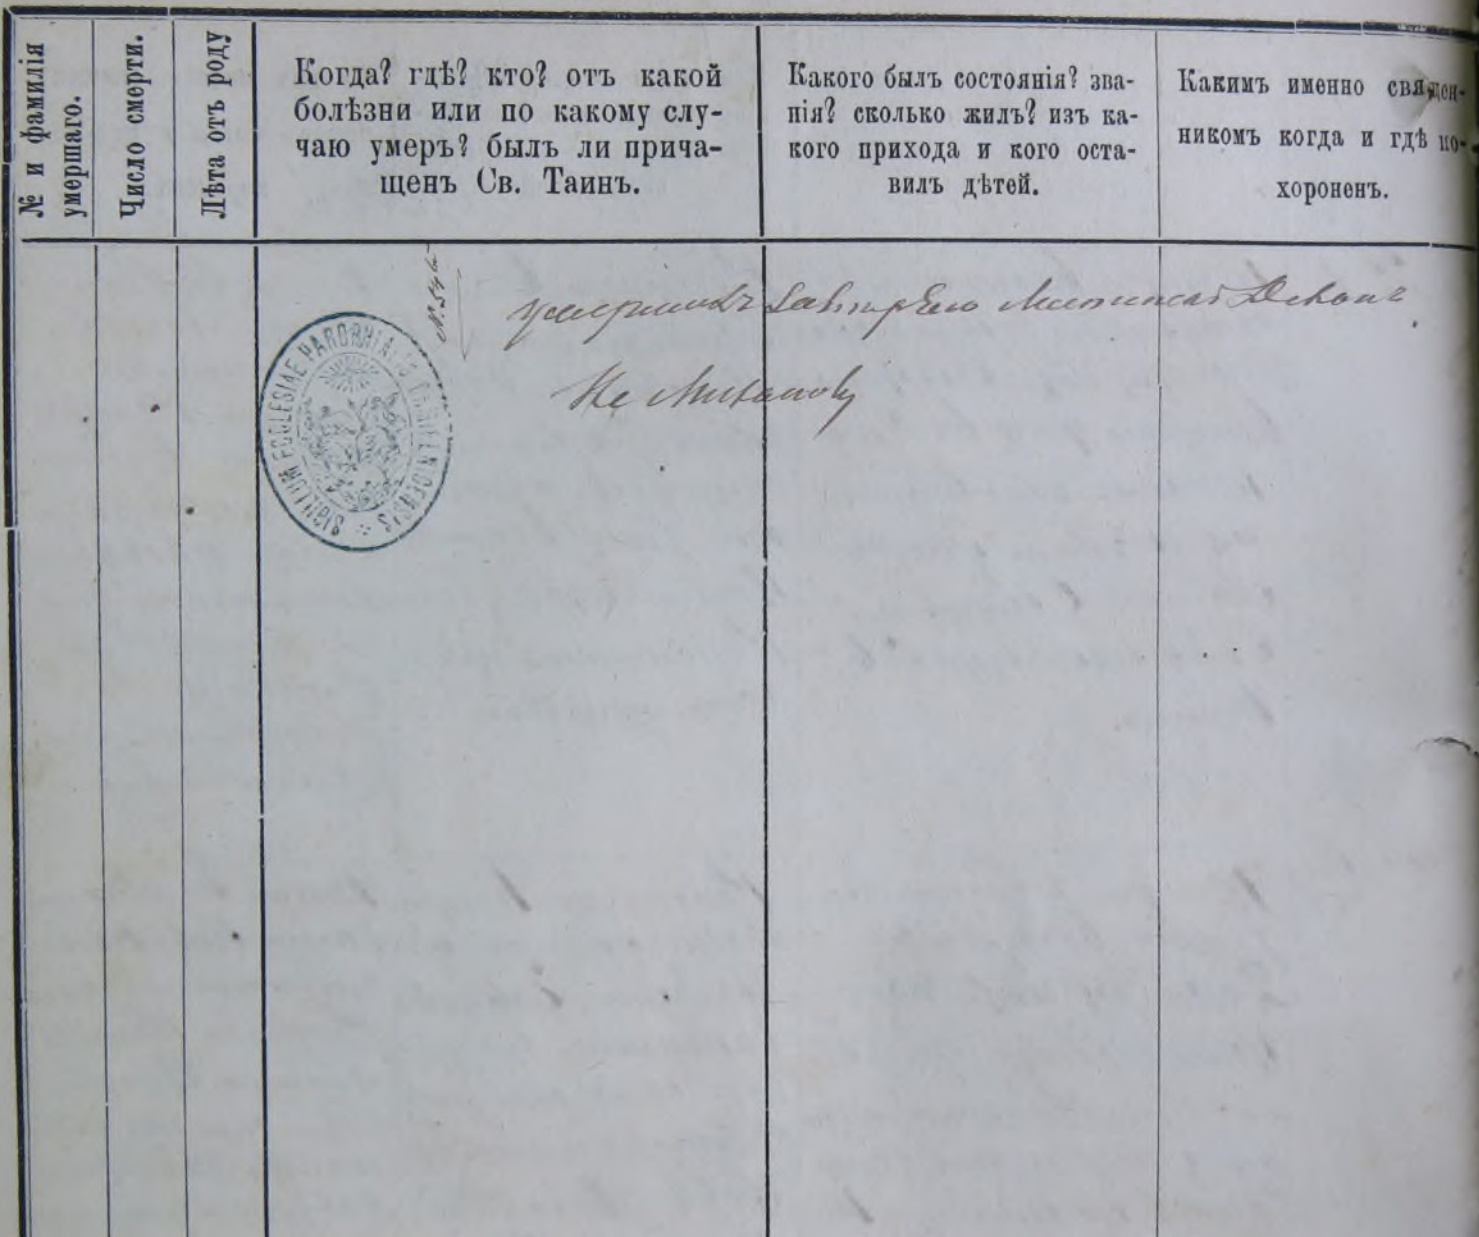 № и фамилія
умершаго.
Число смерти.
Лѣта отъ роду
Когда? гдѣ? кто? отъ какой
болѣзни или по какому слу-
чаю умеръ? былъ ли прича-
щенъ Св. Таинъ.
Какого былъ состоянія? зва-
нія? сколько жилъ? изъ ка-
кого прихода и кого оста-
вилъ дѣтей.
Какимъ именно священ-
никомъ когда и гдѣ по-
хороненъ.
SIGILLUM ECCLESIAE PAROCHIALIS